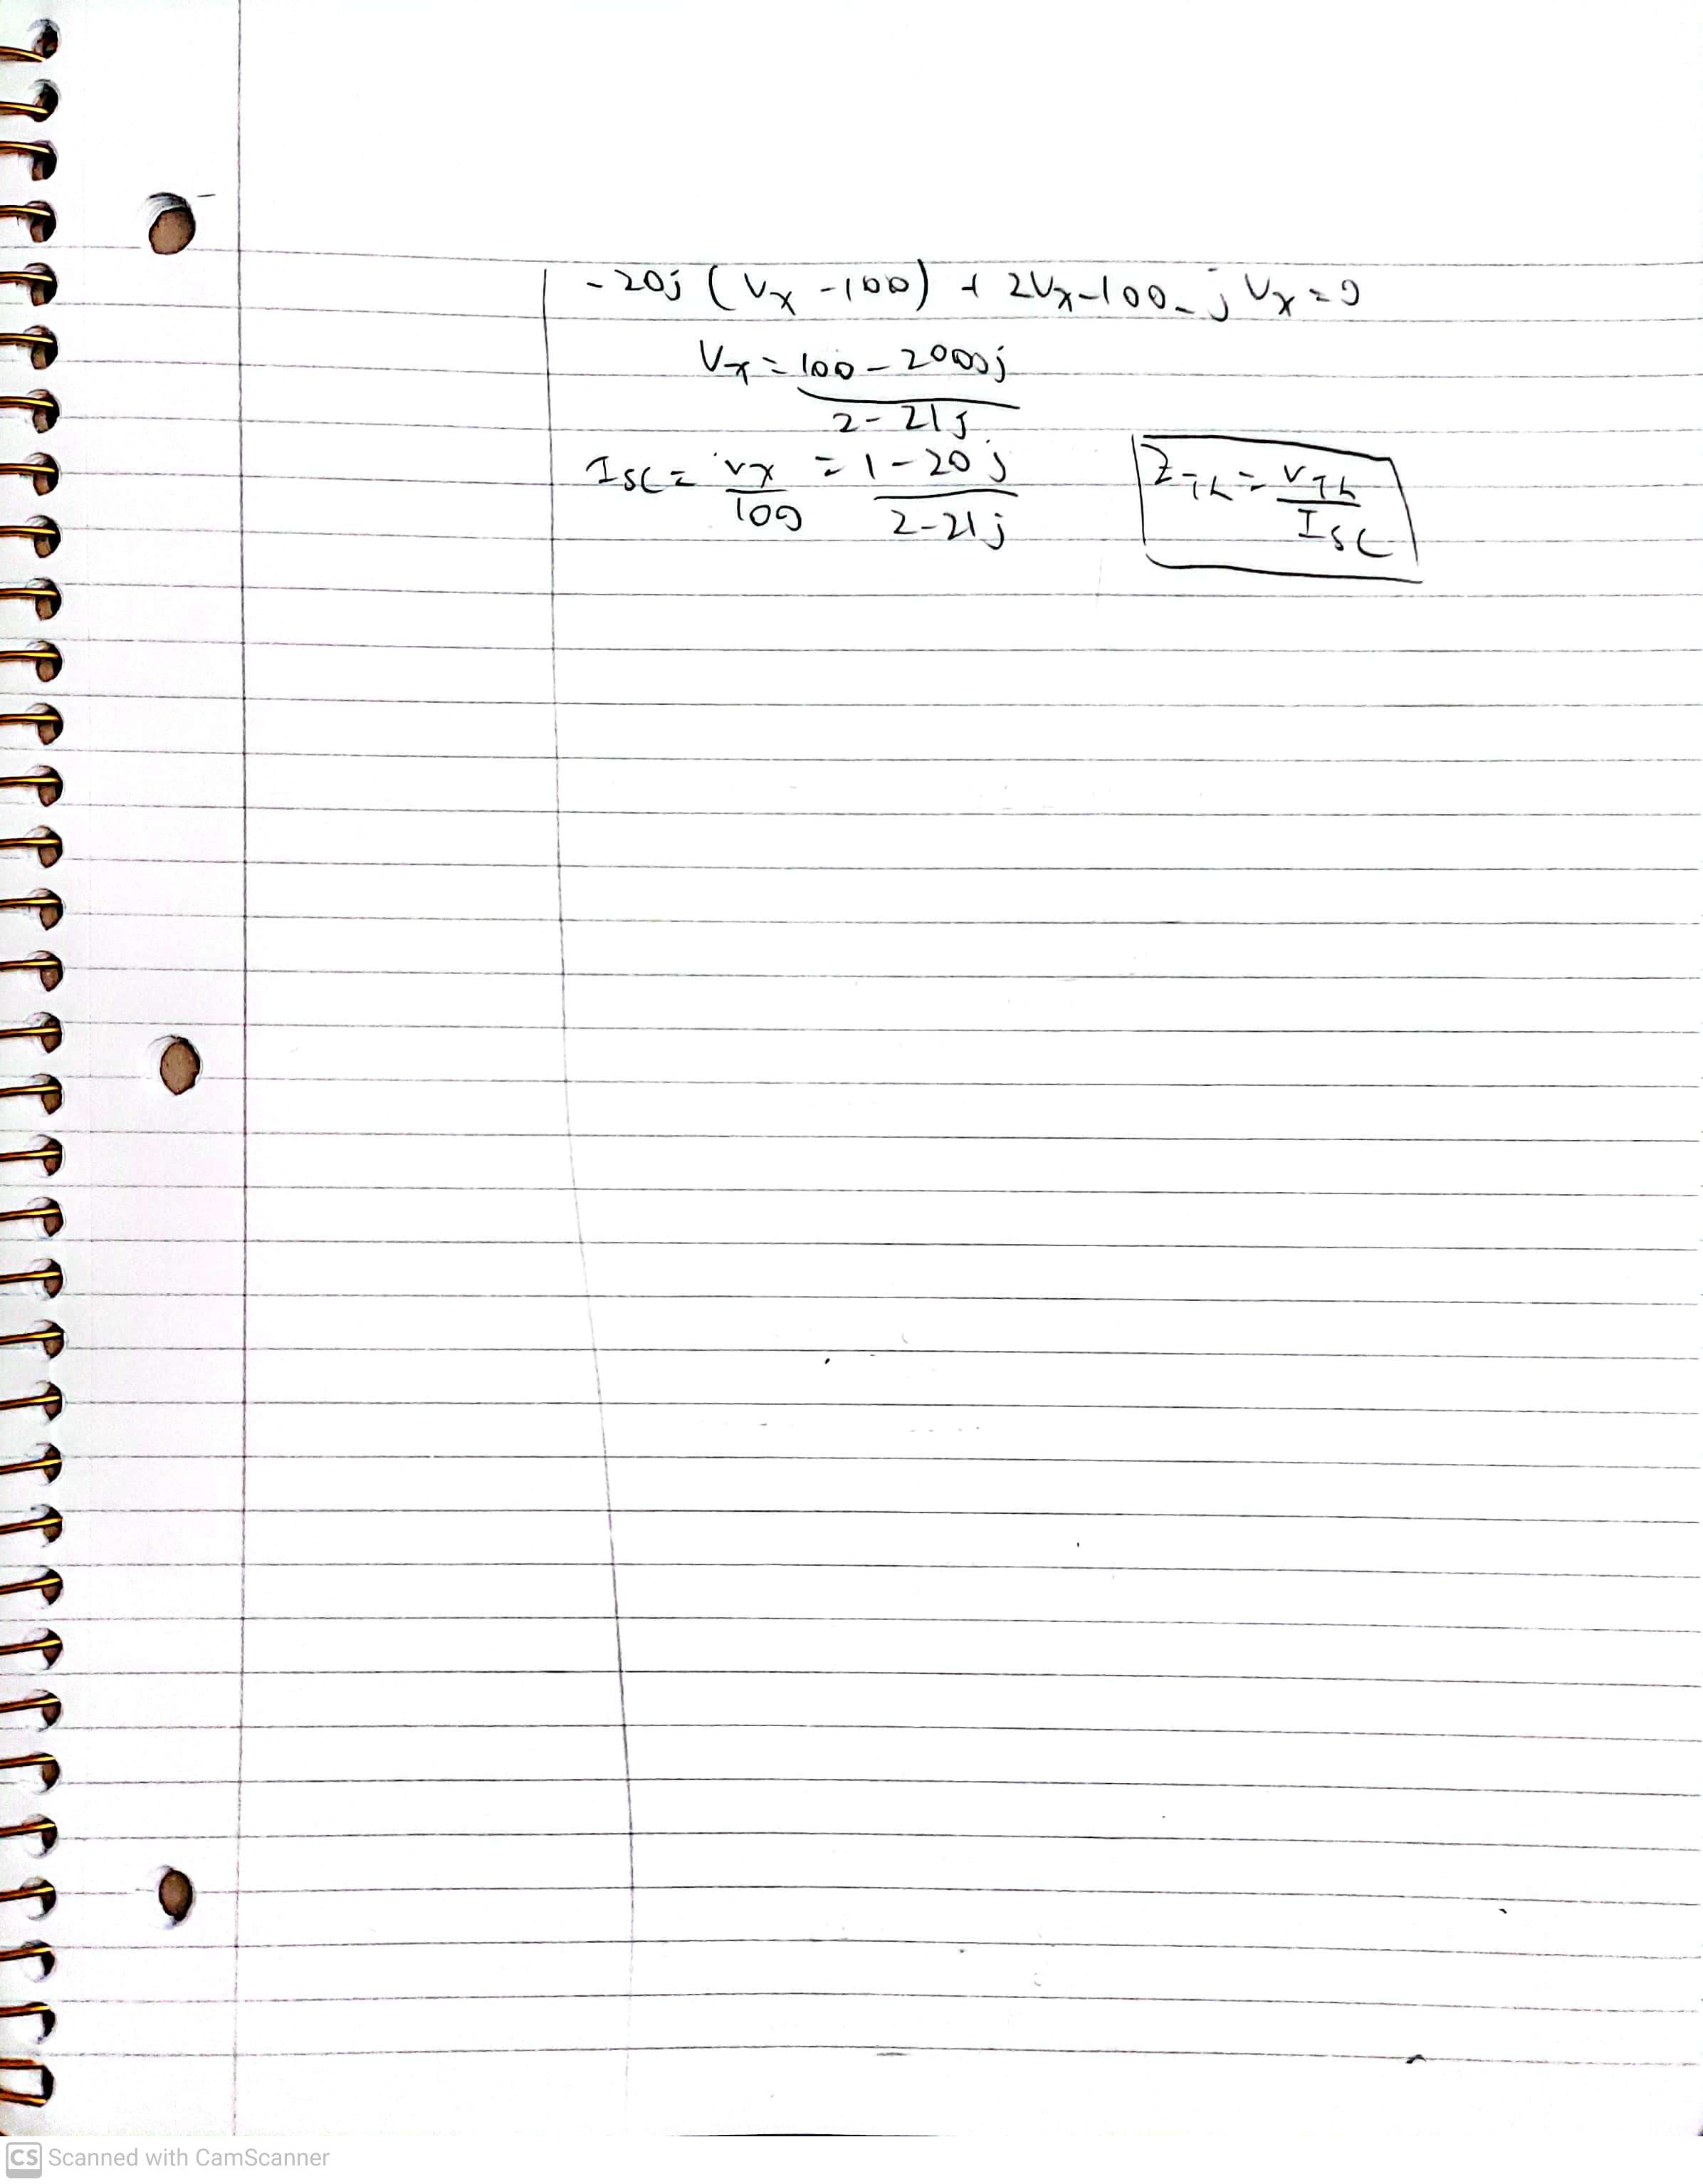 -20j (Vx -100) + 2Vx-100-j Vx=0
Vx = 100 - 2000j
2-21j
Isc = Vx = 1-20j
100 2-21j
ZTh = VTh
Isc
CS Scanned with CamScanner